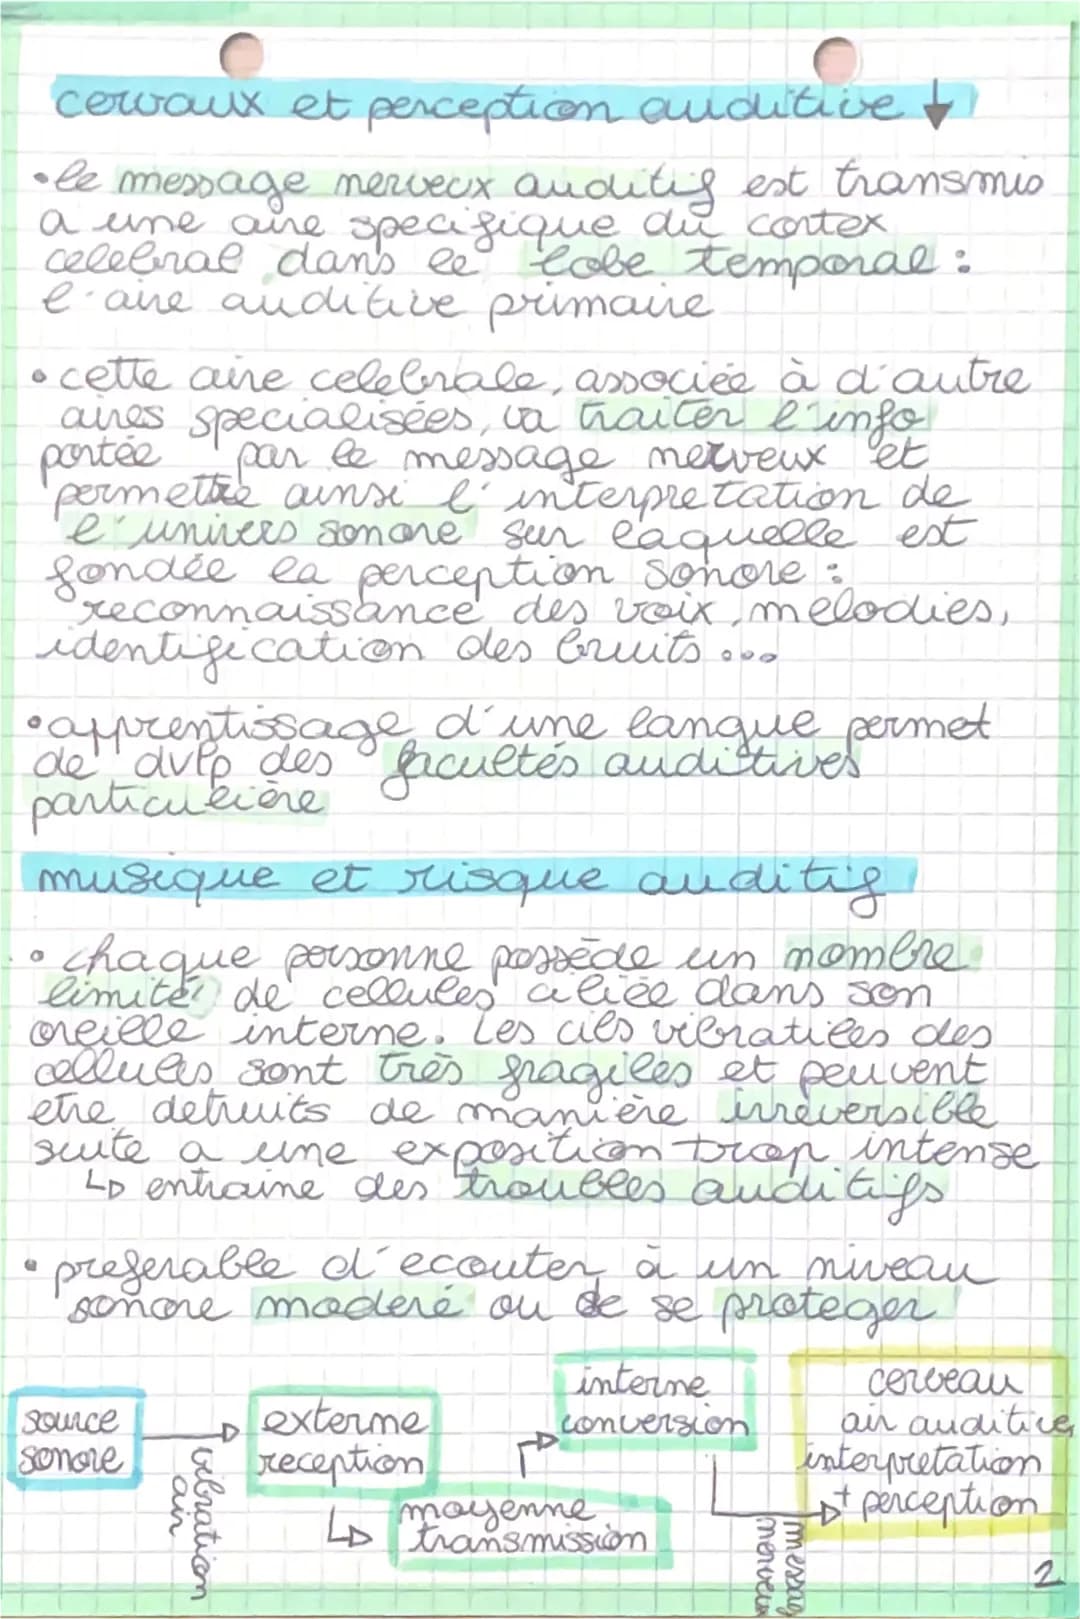 cervaux et perception auditive ↓
• le message nerveux auditif est transmis
a une aire specifique du cortex
celebral dans le lobe temporal :
l'aire auditive primaire
• cette aire celebrale, associée à d'autre
aires specialisées, va traiter l'info
portée par le message nerveux et
permettre ainsi l'interpretation de
l'univers sonore sur laquelle est
fondée la perception sonore :
reconnaissance des voix, melodies,
identification des bruits ...
• apprentissage d'une langue permet
de dvlp des facultés auditives
particulière
musique et risque auditif
• chaque personne possède un nombre
limité de cellules ciliée dans son
oreille interne. Les cils vibratiles des
cellules sont très fragiles et peuvent
etre detruits de manière irréversible
suite a une exposition trop intense
↳ entraine des troubles auditifs
• preferable d'ecouter à un niveau
sonore moderé ou de se proteger
source
sonore
vibration
air
externe
reception
moyenne
transmission
interne
conversion
messag
nerveux
cerveau
air auditive
interpretation
+ perception
2